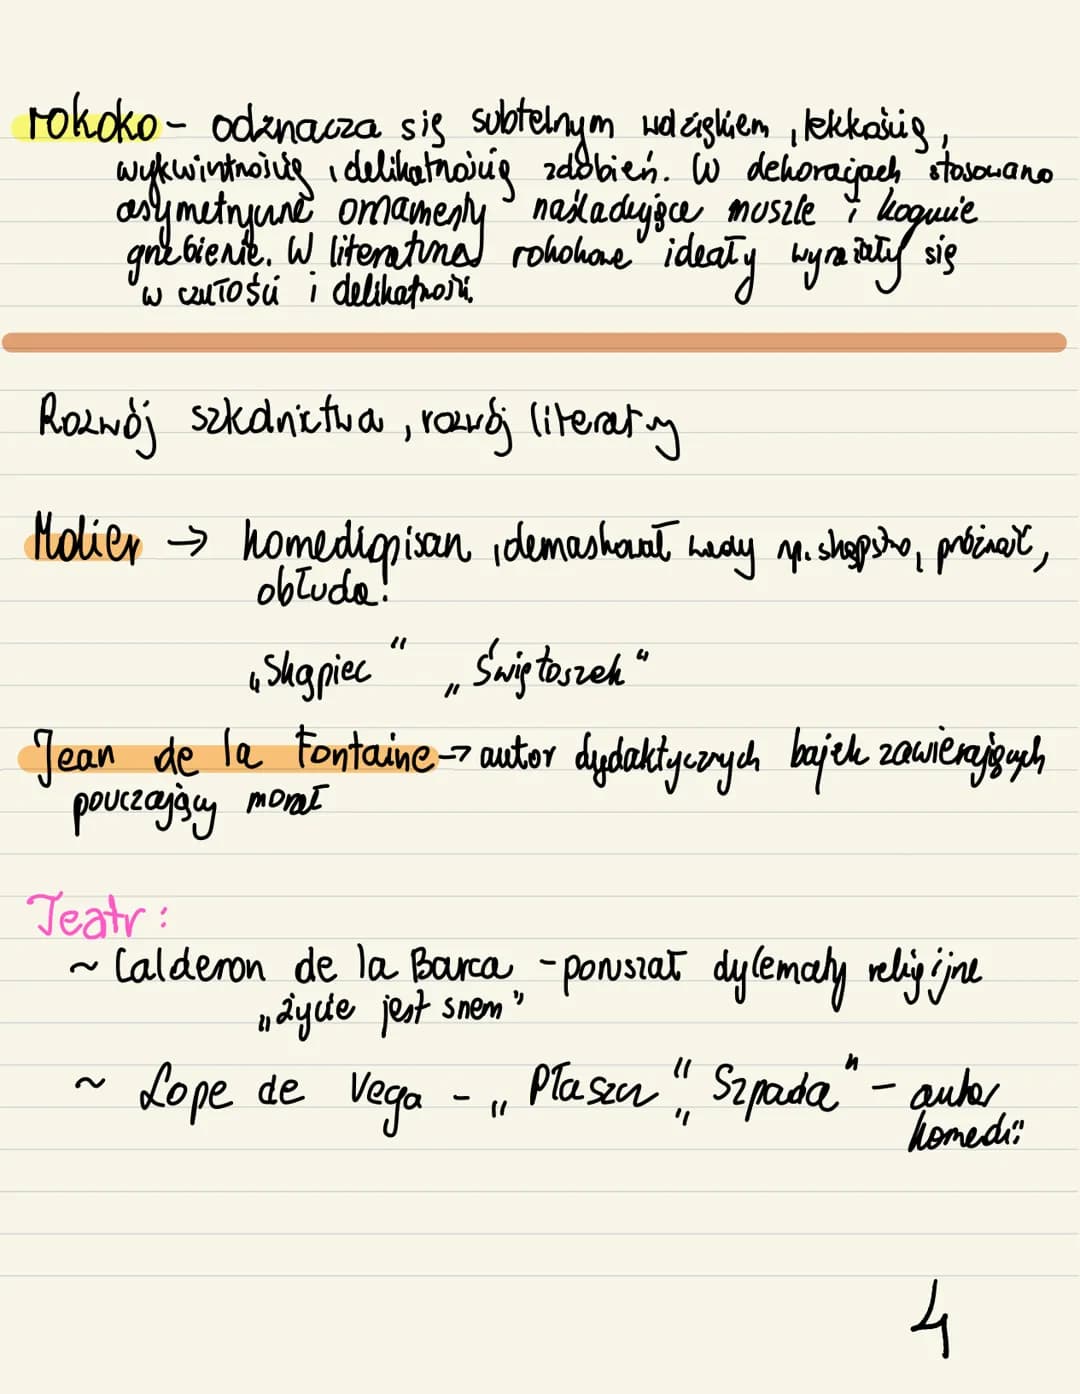 rokoko - odznacza się subtelnym wdziękiem, lekkością,
wykwintnością, delikatnością zdobień. W dekoracjach stosowano
asymetryczne ornamenty naśladujące muszle i kogucie
grzebienie. W literaturze rokokowe ideały wyrażały się
w czułości i delikatności.
Rozwój szkolnictwa, rozwój literaty
Molier → komediopisarz, demaskował wady np. skąpstwo, próżność,
obłuda!
„Skąpiec" „Świętoszek"
Jean de la Fontaine → autor dydaktycznych bajek zawierających
pouczający morał
Teatr:
~ Calderon de la Barca - poruszał dylematy religijne
„życie jest snem"
~ Lope de Vega - „Płaszcz" „Szpada" - autor
komedii
4